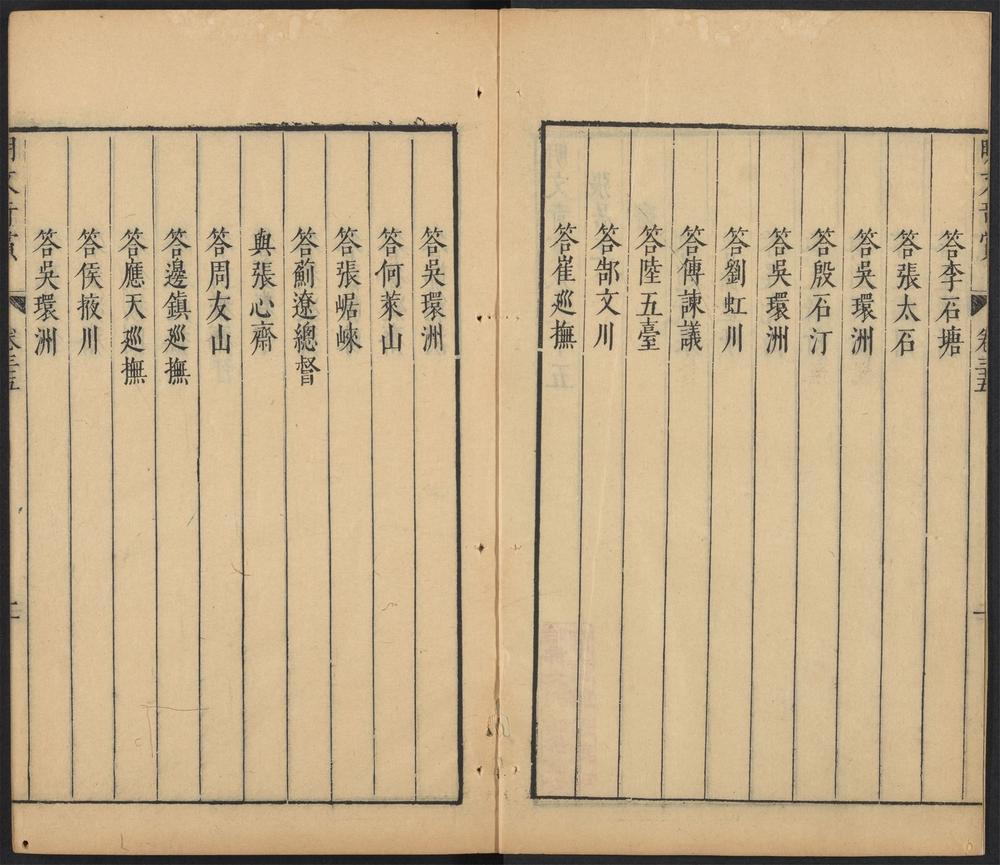 答李石塘
答張太石
答吳環洲
答殷石汀
答吳環洲
答劉虹川
答傅諫議
答陸五臺
答郜文川
答崔廵撫
答吳環洲
答何萊山
答張崌崍
答薊遼總督
與張心齋
答周友山
答邊鎮廵撫
答應天廵撫
答侯掖川
答吳環洲
卷三五